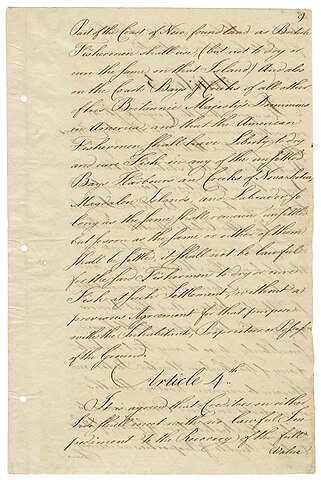 Part of the Coast of New foundland as British
Fishermen shall use, (but not to dry or
cure the same on that Island,) And also
on the Coasts Bays & Creeks of all other
of his Britannic Majesty's Dominions
in America, and that the American
Fishermen shall have Liberty to dry
and cure Fish in any of the unsettled
Bays Harbours and Creeks of Nova Scotia,
Magdalen Islands, and Labrador, so
long as the same shall remain unsettled
but so soon as the same or either of them
shall be settled, it shall not be lawful
for the said Fishermen to dry or cure
Fish at such Settlement, without a
previous Agreement for that purpose
with the Inhabitants, Proprietors or Possessors
of the Ground.
Article 4th
It is agreed that Creditors on either
Side shall meet with no lawful Im
pediment to the Recovery of the full
Value